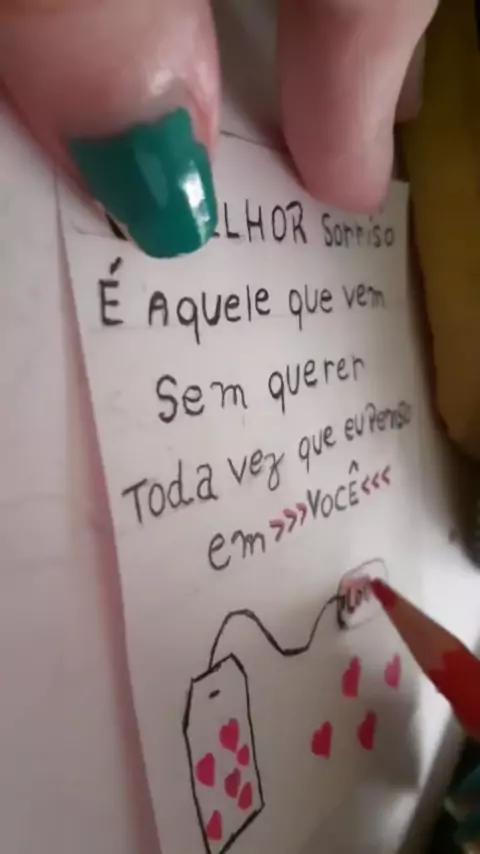 LHOR Sorriso
É Aquele que vem
Sem querer
Toda vez que eu Penso
em >>>VOCÊ<<<